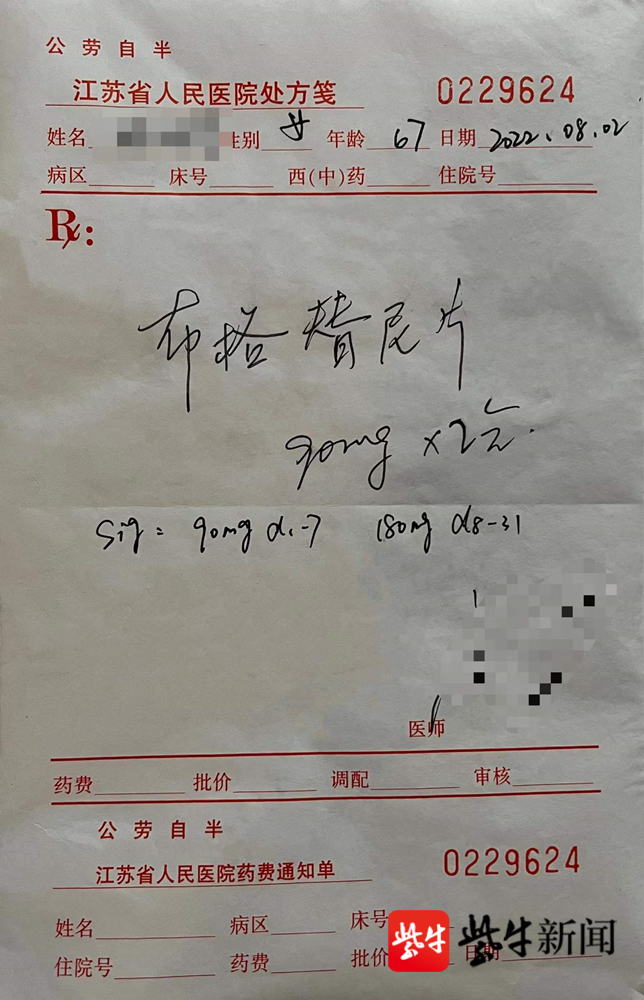 公劳自半
江苏省人民医院处方笺 0229624
姓名 性别 女 年龄 67 日期 2022.08.02
病区 床号 西(中)药 住院号
Rx:
布格替尼片
90mg ×2
Sig: 90mg d1-7 180mg d8-31
医师
药费 批价 调配 审核
公劳自半
江苏省人民医院药费通知单 0229624
姓名 病区 床号
住院号 药费 批价 日期
紫牛 紫牛新闻